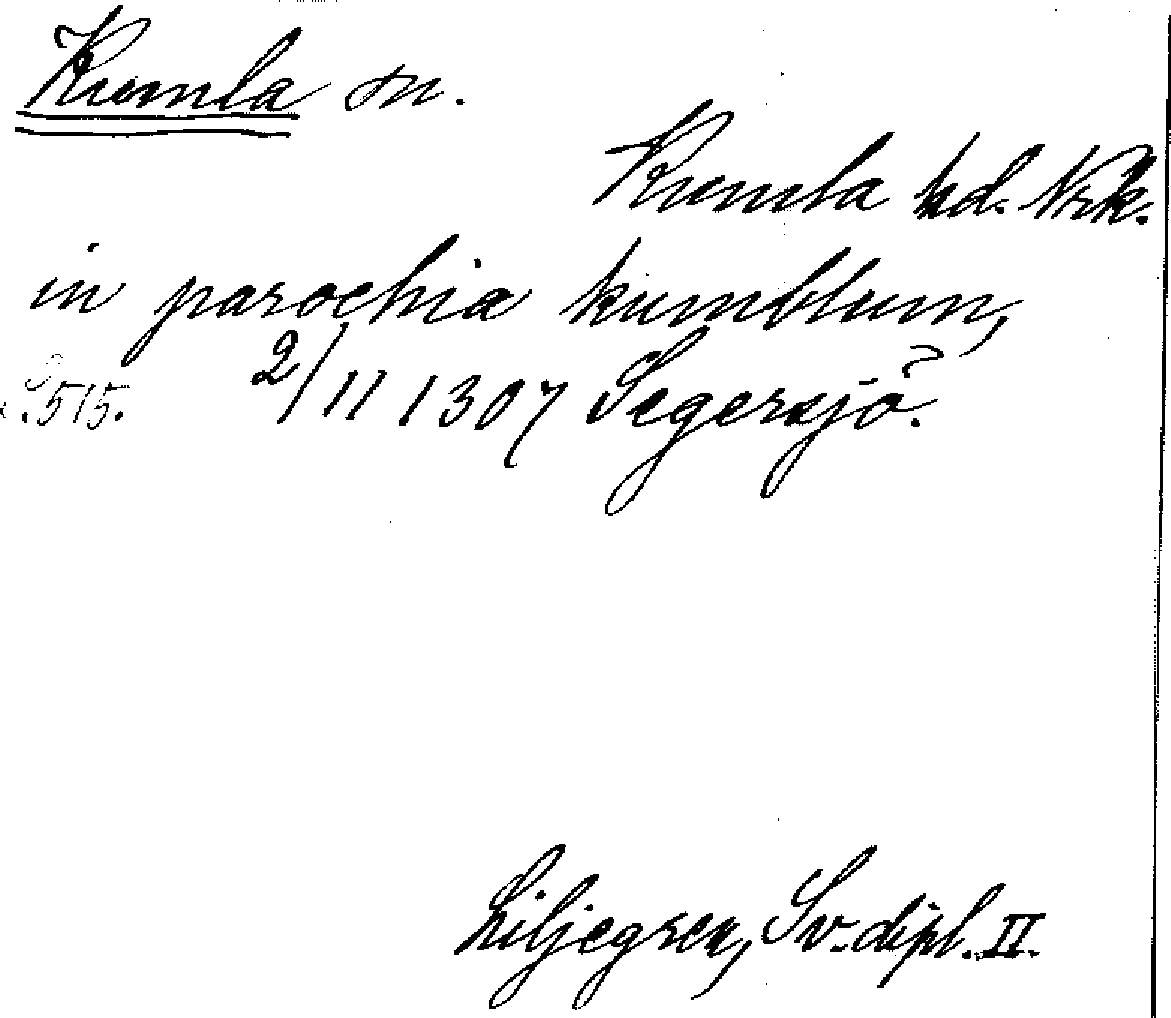 Kumla sn.
Kumla hd. Nrk.
in parochia kumblum,
S. 515. 2/11 1307 Segersjö.
Liljegren, Sv. dipl. II.